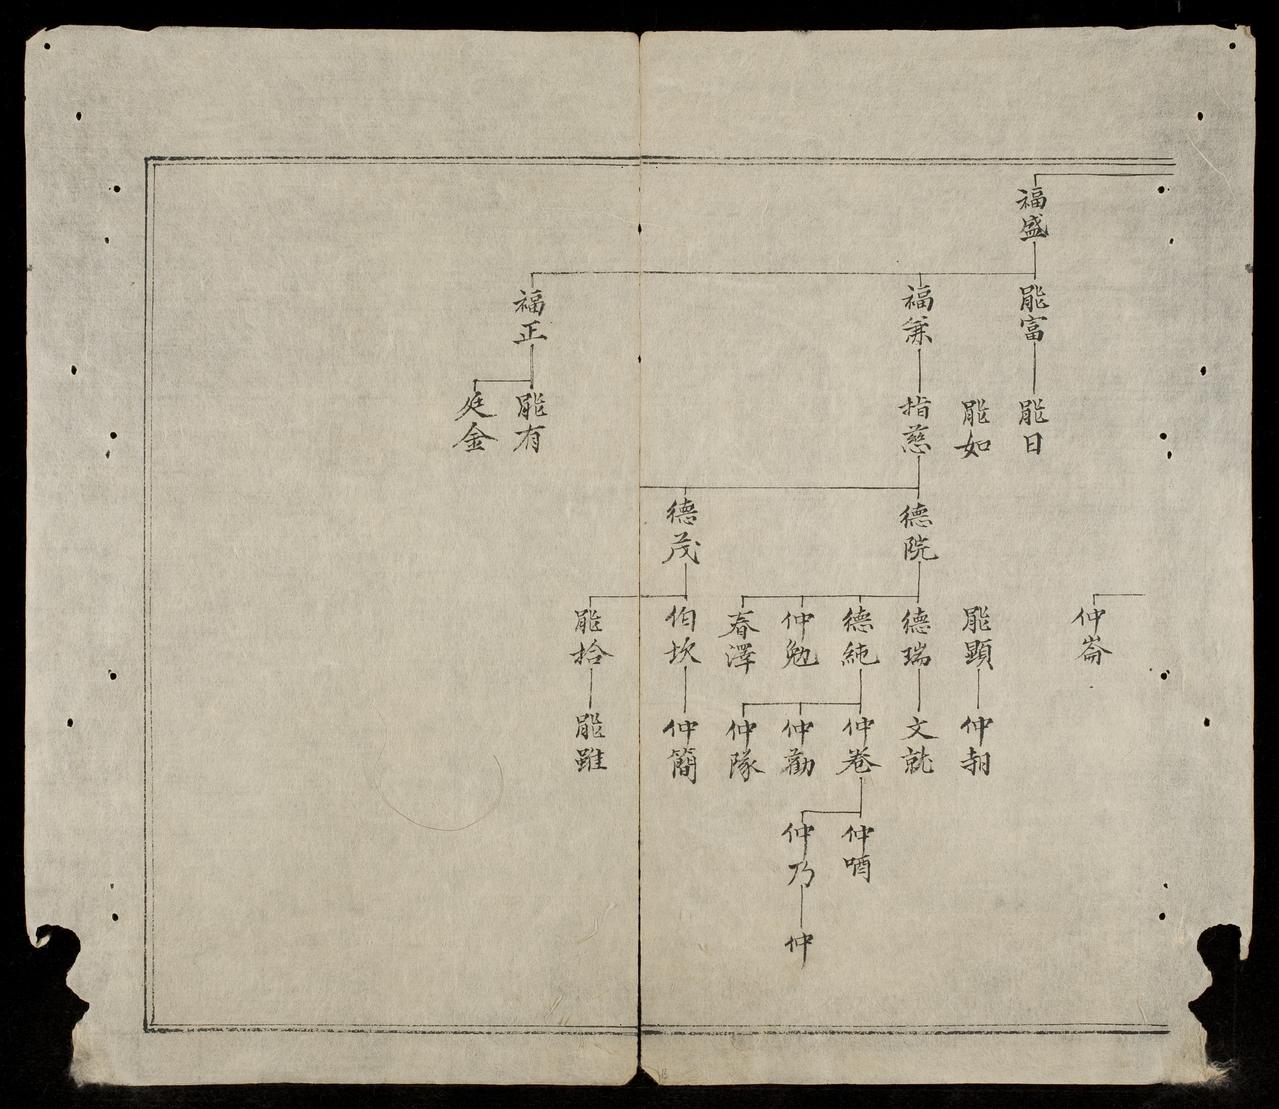 福盛
能富
能日
能如
福兼
指慈
福正
能有
庭金
德院
德茂
仲崙
能顕
仲朝
德瑞
文就
德純
仲勉
春澤
仲卷
仲勸
仲隊
仲
仲乃
仲
伯坎
仲簡
能拾
能雖